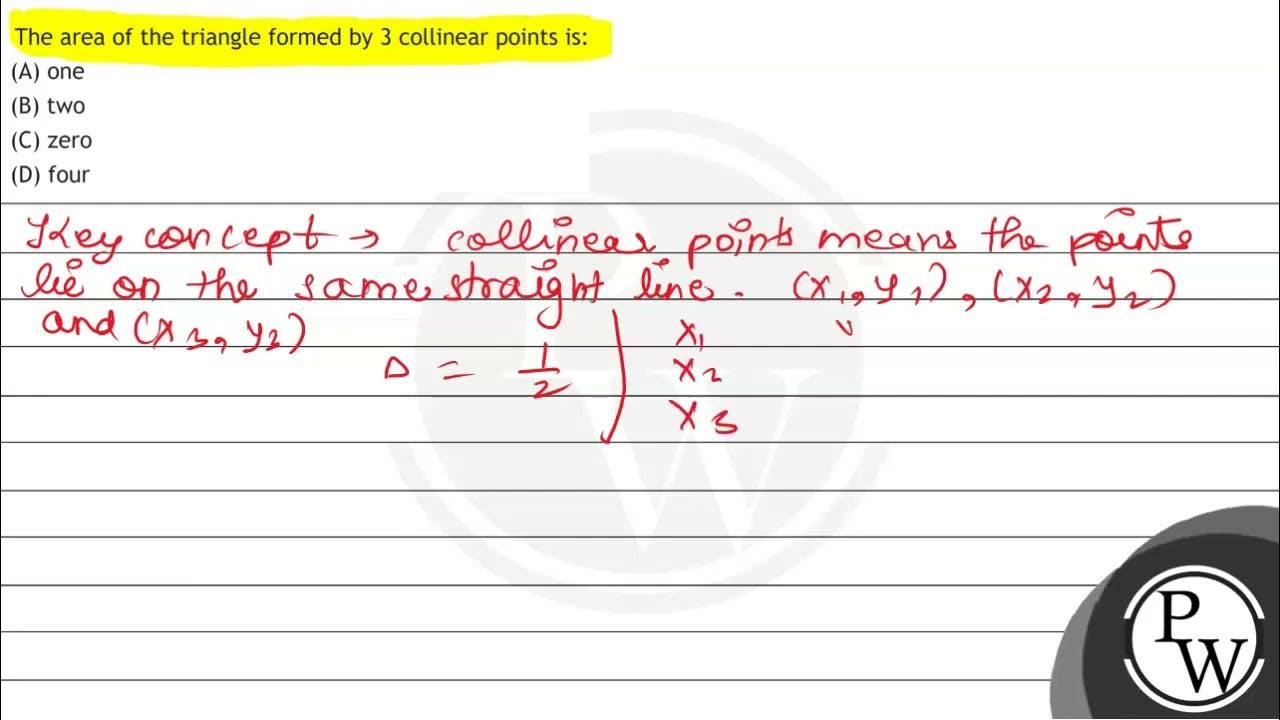 The area of the triangle formed by 3 collinear points is:
(A) one
(B) two
(C) zero
(D) four
Key concept → collinear points means the points
lie on the same straight line. (x₁, y₁), (x₂, y₂)
and (x₃, y₃)
Δ = 1/2 | x₁
x₂
x₃
P
W